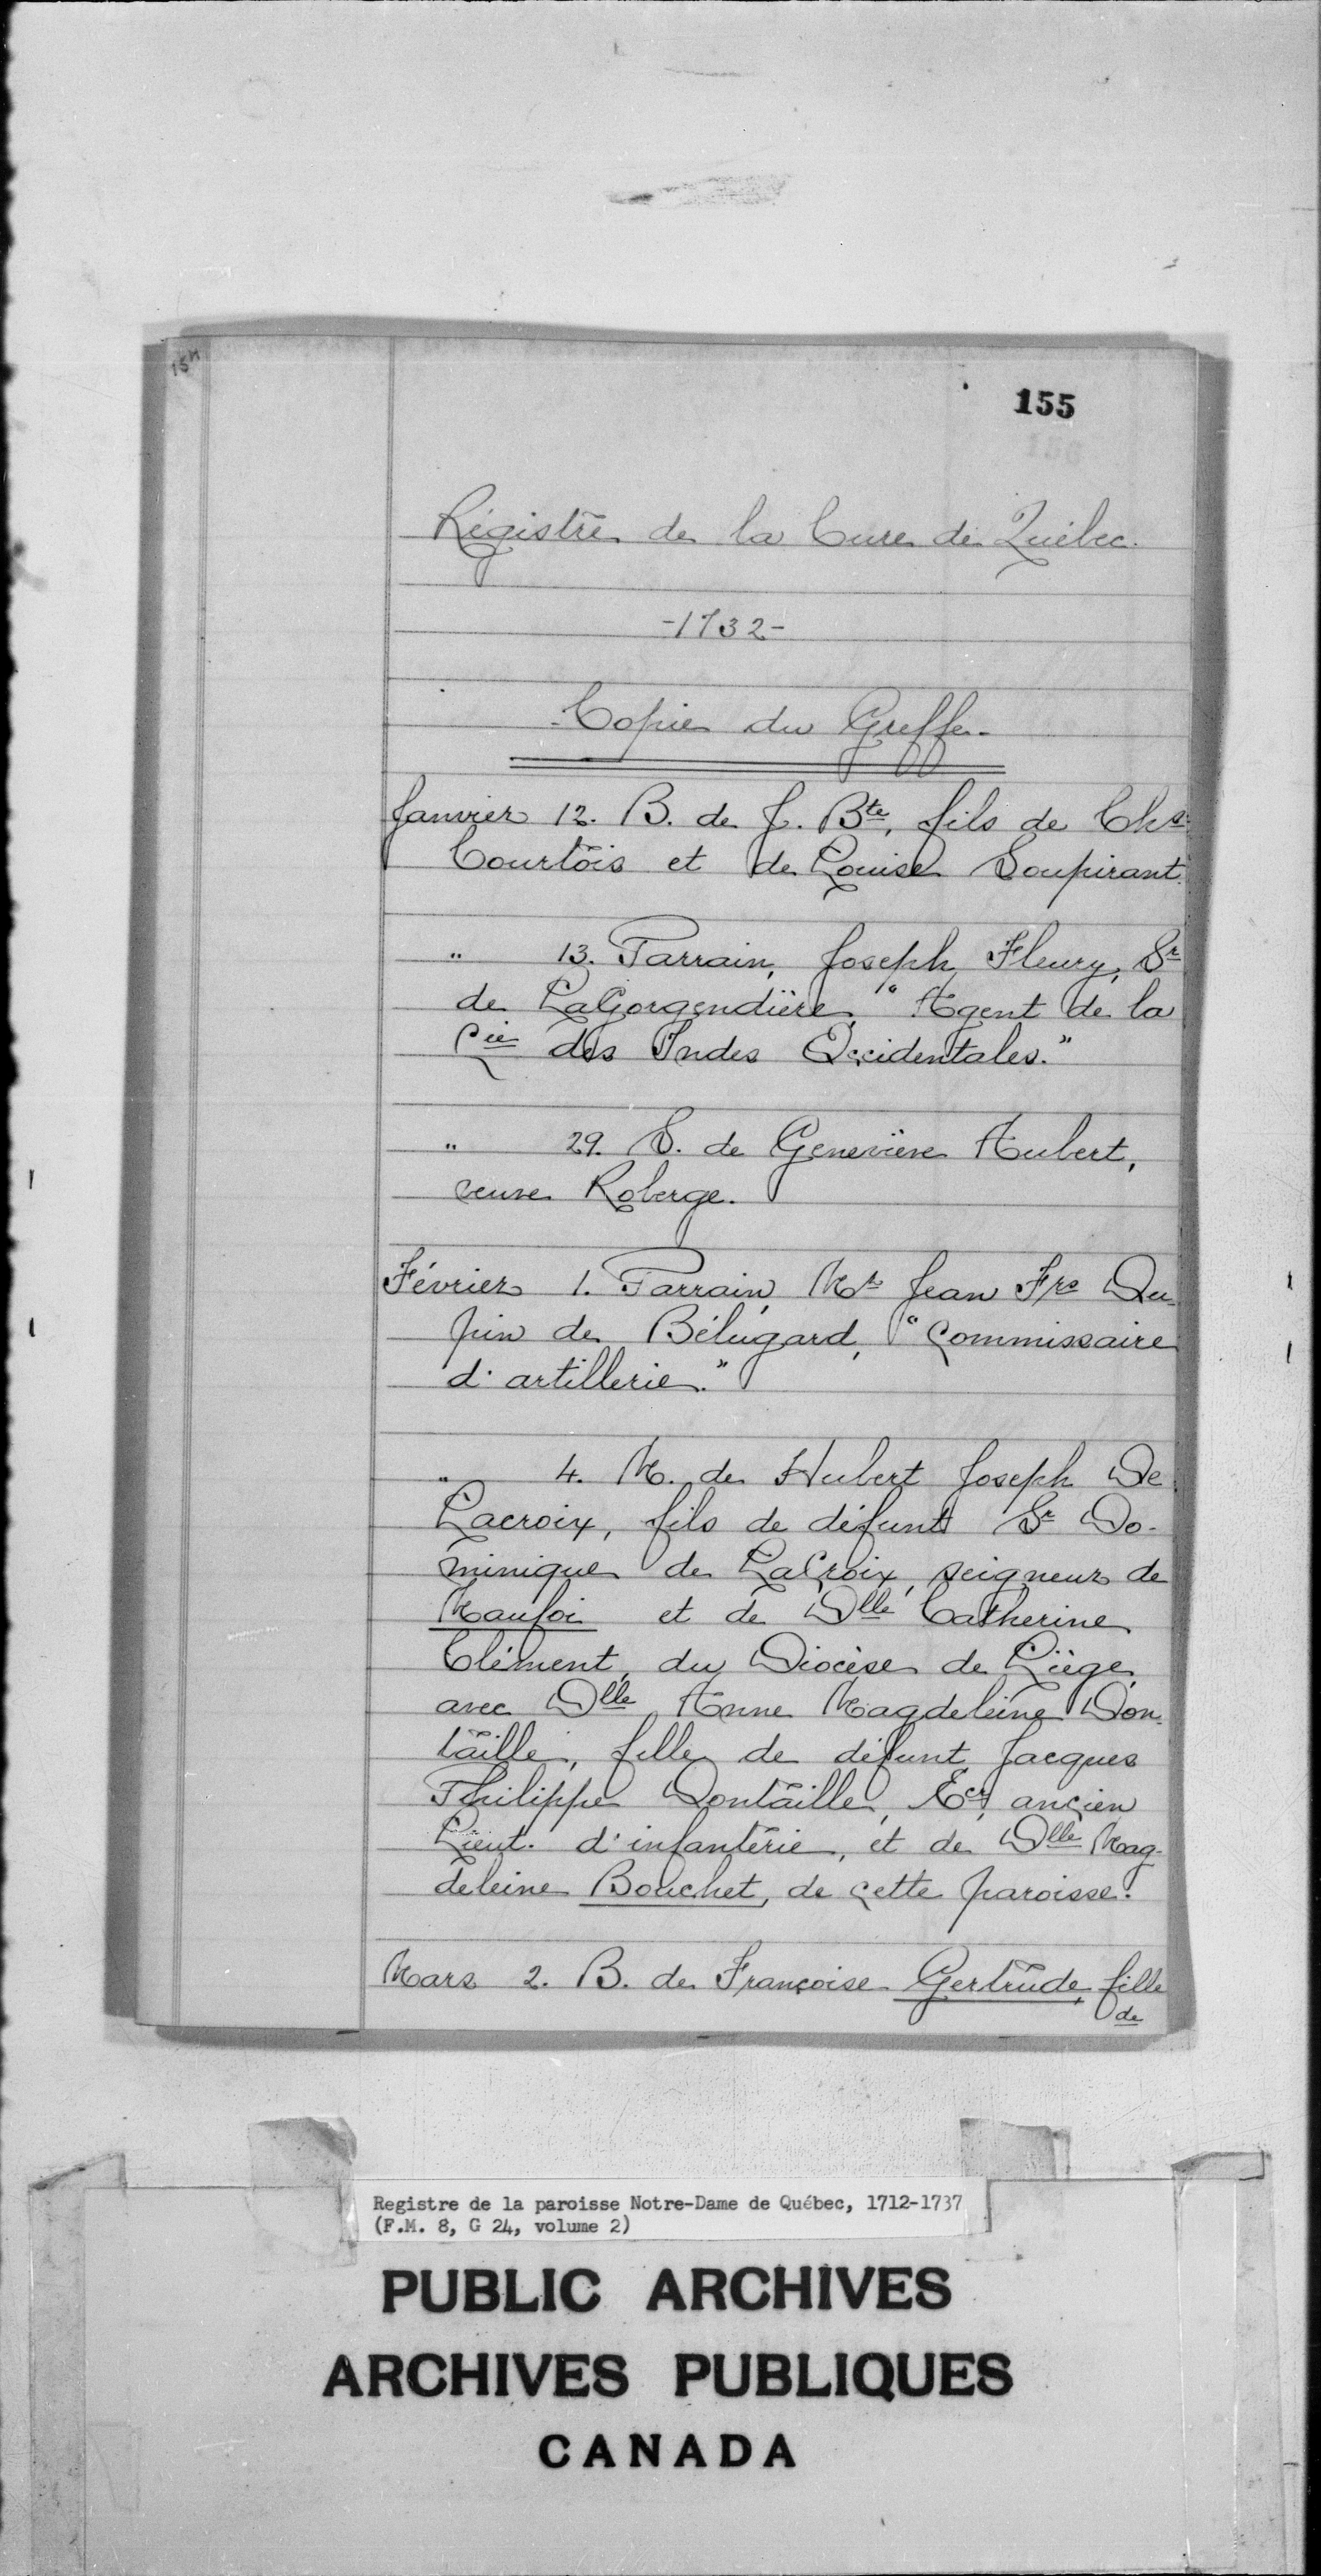 154
155
156
Régistre de la Cure de Québec.
-1732-
-Copie du Greffe-
Janvier 12. B. de J. Bte, fils de Chs
Courtois et de Louise Soupirant.
" 13. Parrain, Joseph Fleury, Sr
de LaGorgendière, "Agent de la
Cie des Indes Occidentales."
" 29. S. de Geneviève Aubert,
veuve Roberge.
Février 1. Parrain, Mr Jean Frs Du-
pin de Bélugard, "Commissaire
d'artillerie."
" 4. M. de Hubert Joseph De
Lacroix, fils de défunt Sr Do-
minique de LaCroix, seigneur de
Maufoi et de Dlle Catherine
Clément, du Diocèse de Liège,
avec Dlle Anne Magdeleine Don-
taille, fille de défunt Jacques
Philippe Dontaille, Ecr, ancien
Lieut. d'infanterie, et de Dlle Mag-
deleine Bouchet, de cette paroisse.
Mars 2. B. de Françoise Gertrude, fille
de
Registre de la paroisse Notre-Dame de Québec, 1712-1737
(F.M. 8, G 24, volume 2)
PUBLIC ARCHIVES
ARCHIVES PUBLIQUES
CANADA